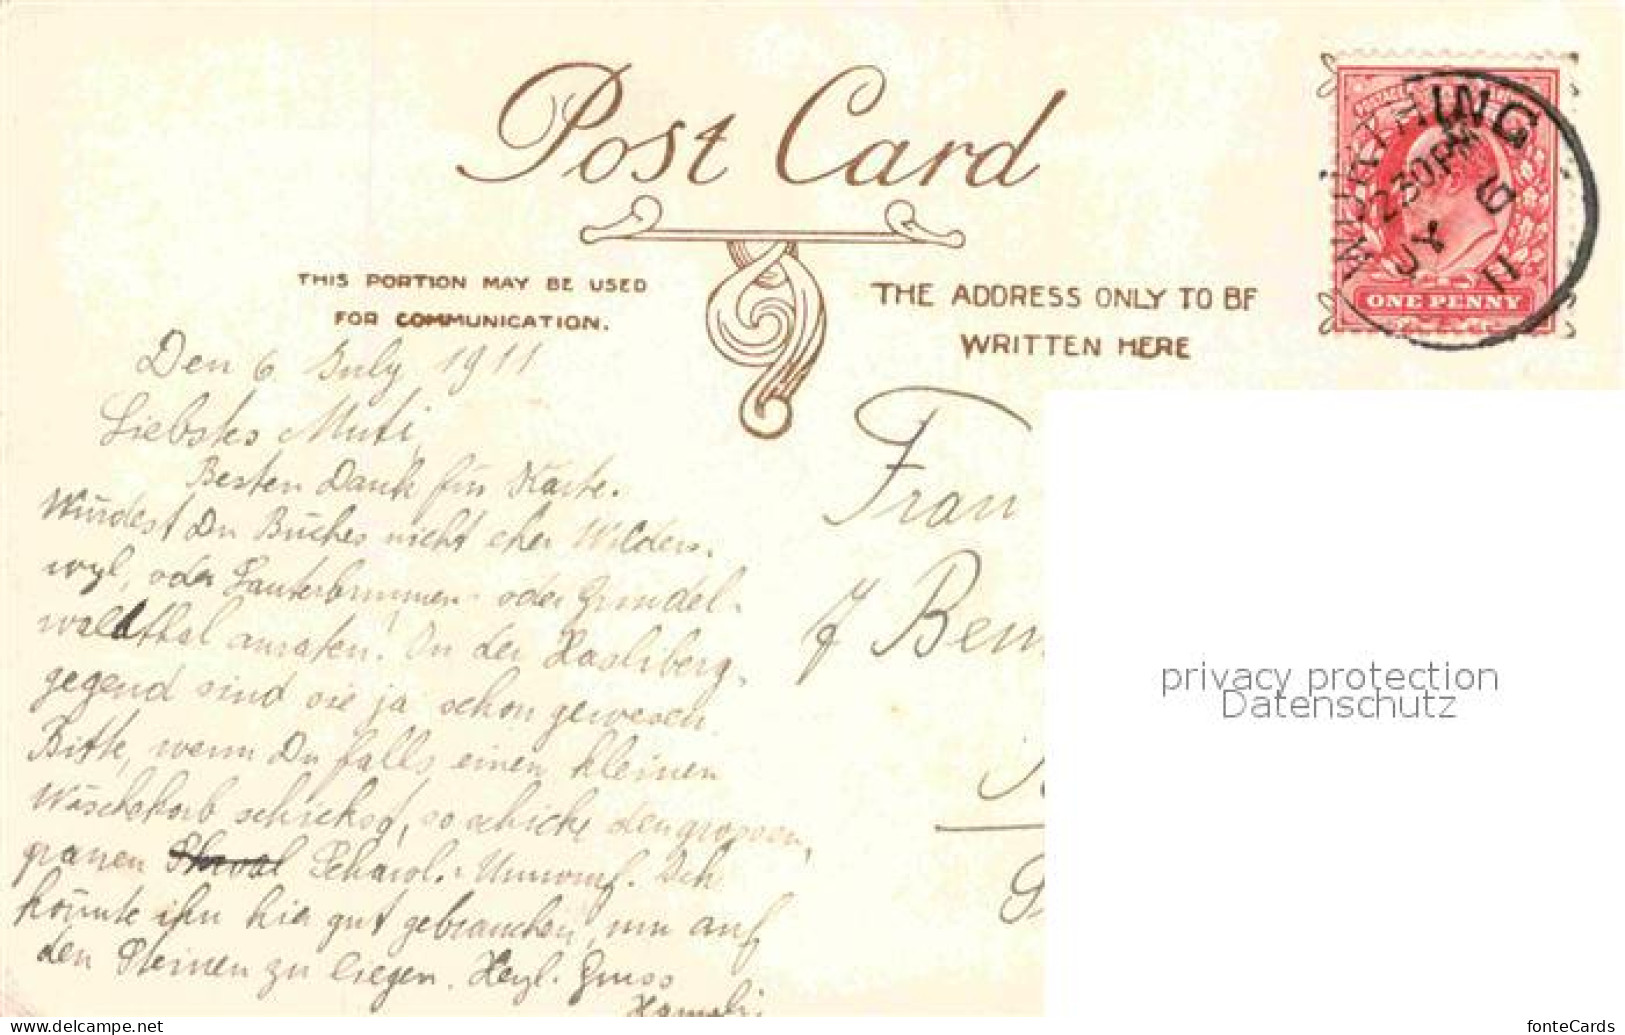 Post Card
THIS PORTION MAY BE USED
FOR COMMUNICATION.
THE ADDRESS ONLY TO BE
WRITTEN HERE
WORTHING
2 30 PM
JY 6
11
POSTAGE
ONE PENNY
Den 6. July 1911
Liebstes Muti,
Besten Dank für Karte.
Würdest Du Büches nicht eher Wilders-
wyl, oder Lauterbrunnen oder Grindel-
waldthal anraten? In der Hasliberg-
gegend sind sie ja schon gewesen.
Bitte, wenn Du falls einen kleinen
Wäschekorb schickst, so schicke den grossen,
grauen Shwal Schawl-Umwurf. Ich
könnte ihn hier gut gebrauchen, um auf
den Steinen zu liegen. Herzl. Gruss
Frau
privacy protection
Datenschutz
www.delcampe.net
fonteCards